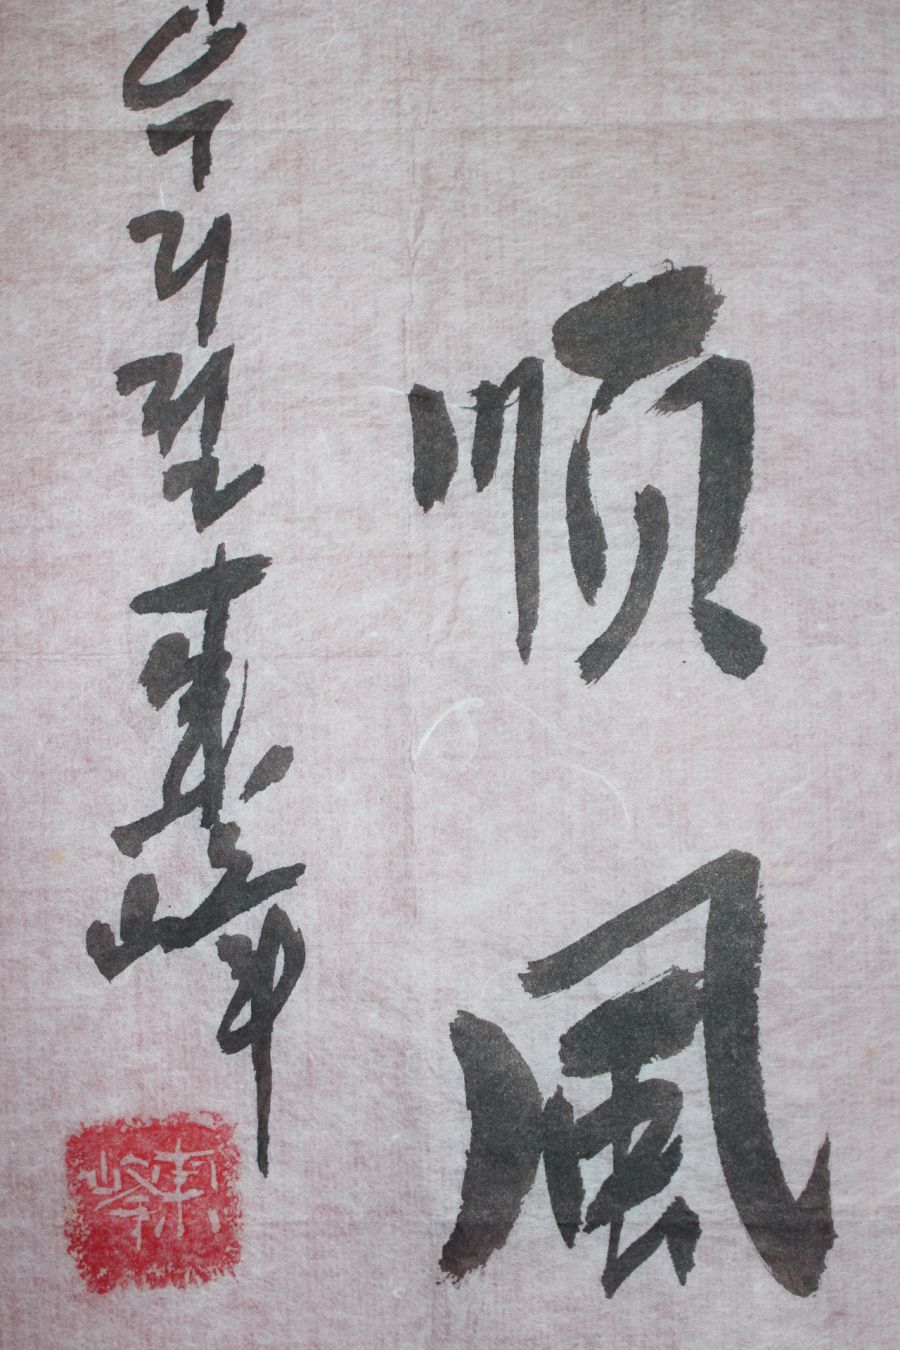 順風
우리절 東峰
東峰